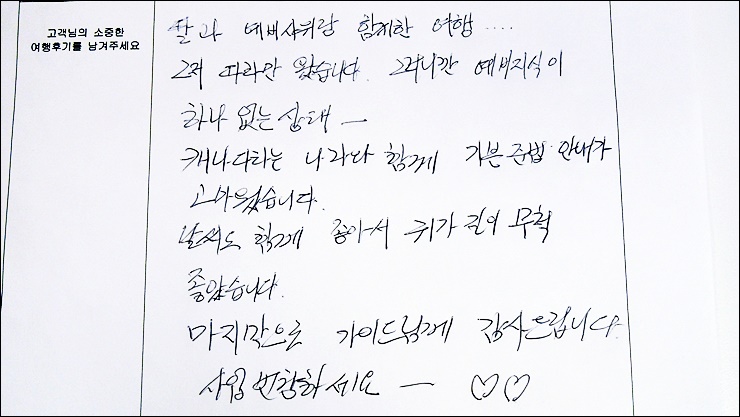 고객님의 소중한
여행후기를 남겨주세요
딸과 예비사위랑 함께한 여행....
그저 따라만 왔습니다. 그러니깐 예비지식이
하나 없는 상태 —
캐나다라는 나라와 함께 기쁜 안내가
고마웠습니다.
날씨도 함께 좋아서 무척
좋았습니다.
마지막으로 가이드님께 감사드립니다.
사업 번창하세요 — ♡♡